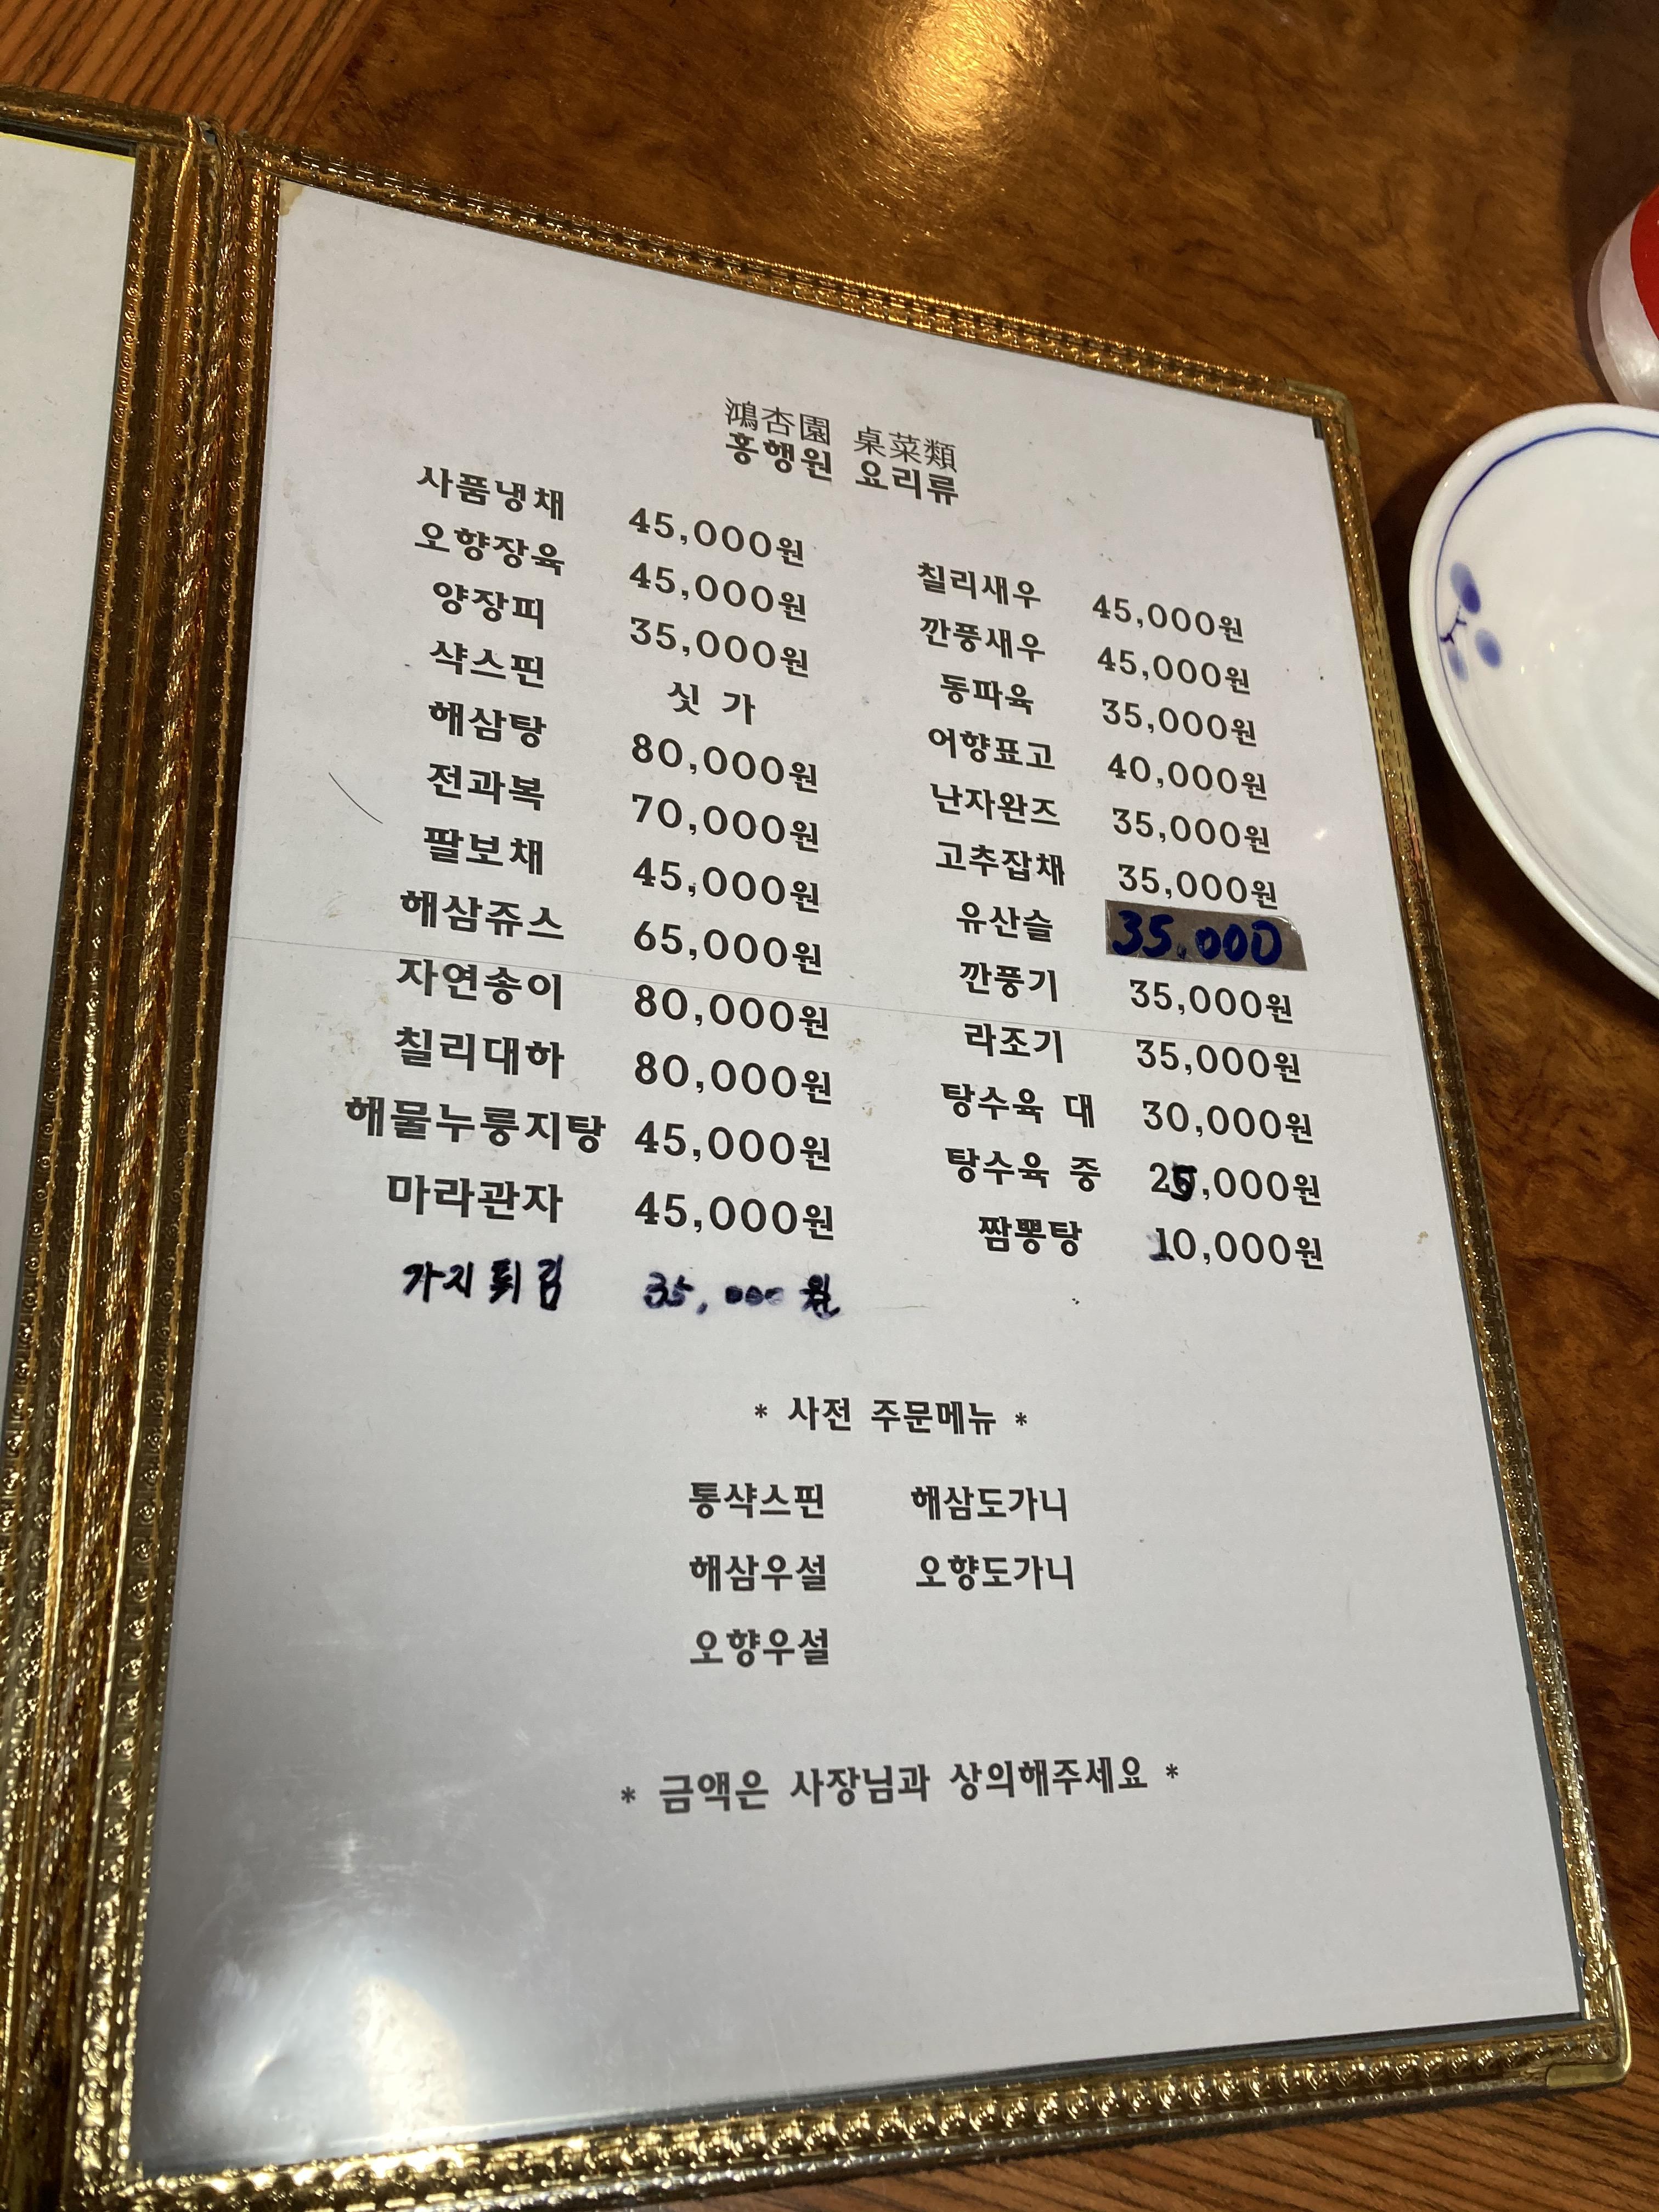 鴻杏園 桌菜類
홍행원 요리류
사품냉채 45,000원
오향장육 45,000원
양장피 35,000원
샥스핀 싯 가
해삼탕 80,000원
전과복 70,000원
팔보채 45,000원
해삼쥬스 65,000원
자연송이 80,000원
칠리대하 80,000원
해물누룽지탕 45,000원
마라관자 45,000원
가지튀김 35,000원
칠리새우 45,000원
깐풍새우 45,000원
동파육 35,000원
어향표고 40,000원
난자완즈 35,000원
고추잡채 35,000원
유산슬 35.000
깐풍기 35,000원
라조기 35,000원
탕수육 대 30,000원
탕수육 중 25,000원
짬뽕탕 10,000원
* 사전 주문메뉴 *
통샥스핀 해삼도가니
해삼우설 오향도가니
오향우설
* 금액은 사장님과 상의해주세요 *